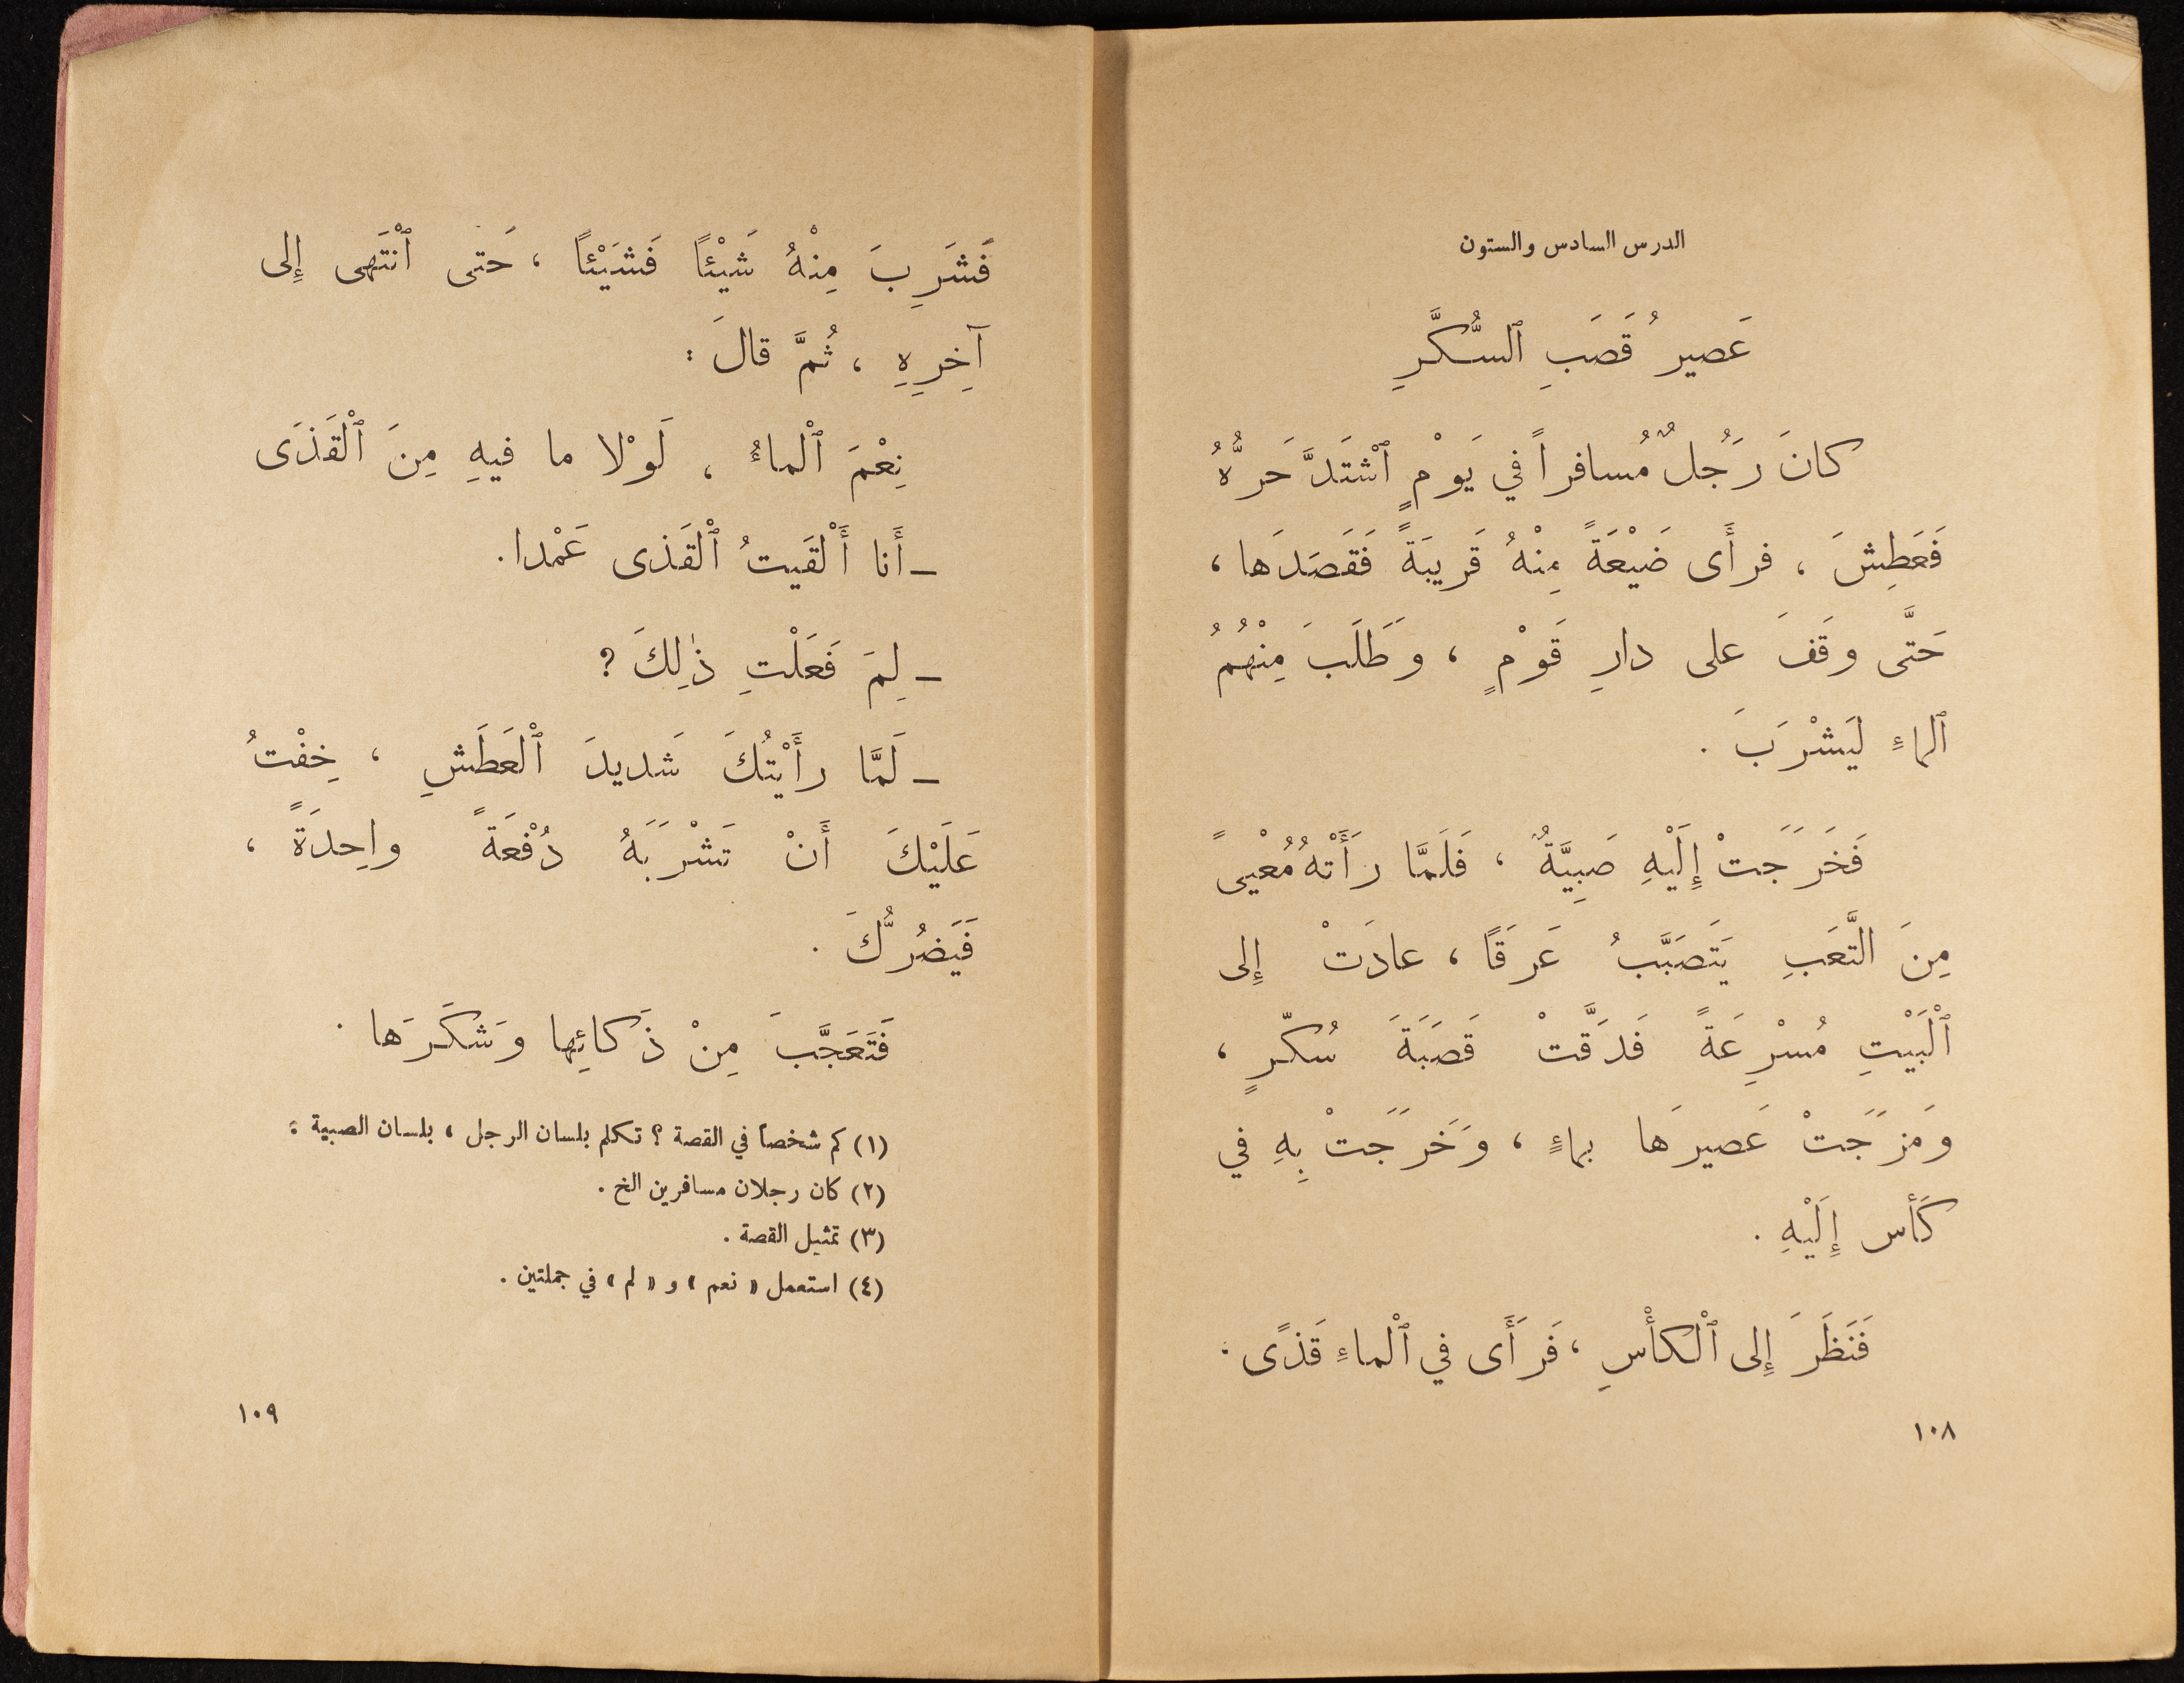 الدرس السادس والستون
عَصيرُ قَصَبِ ٱلسُّكَّرِ
كانَ رَجُلٌ مُسافراً في يَوْمٍ ٱشْتَدَّ حَرُّهُ
فَعَطِشَ ، فرأَى ضَيْعَةً مِنْهُ قَريبَةً فَقَصَدَها ،
حَتَّى وقَفَ على دارِ قَوْمٍ ، وَطَلَبَ مِنْهُمُ
ٱلماءِ لِيَشْرَبَ .
فَخَرَجَتْ إِلَيْهِ صَبِيَّةٌ ، فَلَمَّا رَأَتْهُ مُعْيىً
مِنَ التَّعَبِ يَتَصَبَّبُ عَرَقًا ، عادَتْ إِلى
ٱلْبَيْتِ مُسْرِعَةً فَدَقَّتْ قَصَبَةَ سُكّرٍ ،
وَمزَجَتْ عَصيرَهَا بماءٍ ، وَخَرَجَتْ بِهِ في
كَأس إِلَيْهِ .
فَنَظَرَ إِلى ٱلْكأْسِ ، فَرَأَى في ٱلْماءِ قَذًى .
١٠٨
فَشَرِبَ مِنْهُ شَيْئاً فَشَيْئاً ، حَتى ٱنْتَهى إِلى
آخِرِهِ ، ثُمَّ قالَ :
نِعْمَ ٱلْماءُ ، لَوْلا ما فيهِ مِنَ ٱلْقَذَى
ــ أَنا أَلْقَيتُ ٱلْقَذى عَمْدا .
ــ لِمَ فَعَلْتِ ذٰلِكَ ?
ــ لَمَّا رأَيْتُكَ شَديدَ ٱلْعَطَشِ ، خِفْتُ
عَلَيْكَ أَنْ تَشْرَبَهُ دُفْعَةً واحِدَةً ،
فَيَضُرُّكَ .
فَتَعَجَّبَ مِنْ ذَكائِها وَشَكَرَها .
(١) كم شخصاً في القصة ؟ تكلم بلسان الرجل ، بلسان الصبية :
(٢) كان رجلان مسافرين الخ .
(٣) تمثيل القصة .
(٤) استعمل « نعم » و « لم » في جملتين .
١٠٩